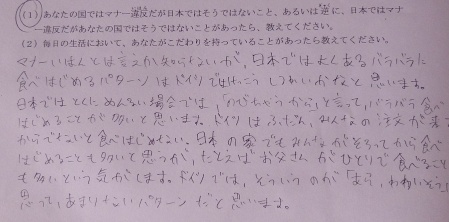 (1) あなたの国ではマナー違反だが日本ではそうではないこと、あるいは逆に、日本ではマナー違反だがあなたの国ではそうではないことがあったら、教えてください。
(2) 毎日の生活において、あなたがこだわりを持っていることがあったら教えてください。
マナーいはんとは言えか知らないが、日本ではよくあるバラバラに
食べはじめるパターンはドイツではけっこうしつれいかなと思います。
日本ではとくにめんるい場合では、「のびちゃうから」と言って、バラバラ食べ
はじめることが多いと思います。ドイツはふだん、みんなの注文が来て
からでないと食べはじめない。日本の家でもみんながそろってから食べ
はじめることも多いと思うが、たとえばお父さんがひとりで食べること
も多いという気がします。ドイツでは、そういうのが「まら、かわいそう」
思って、あまりないパターンだと思います。